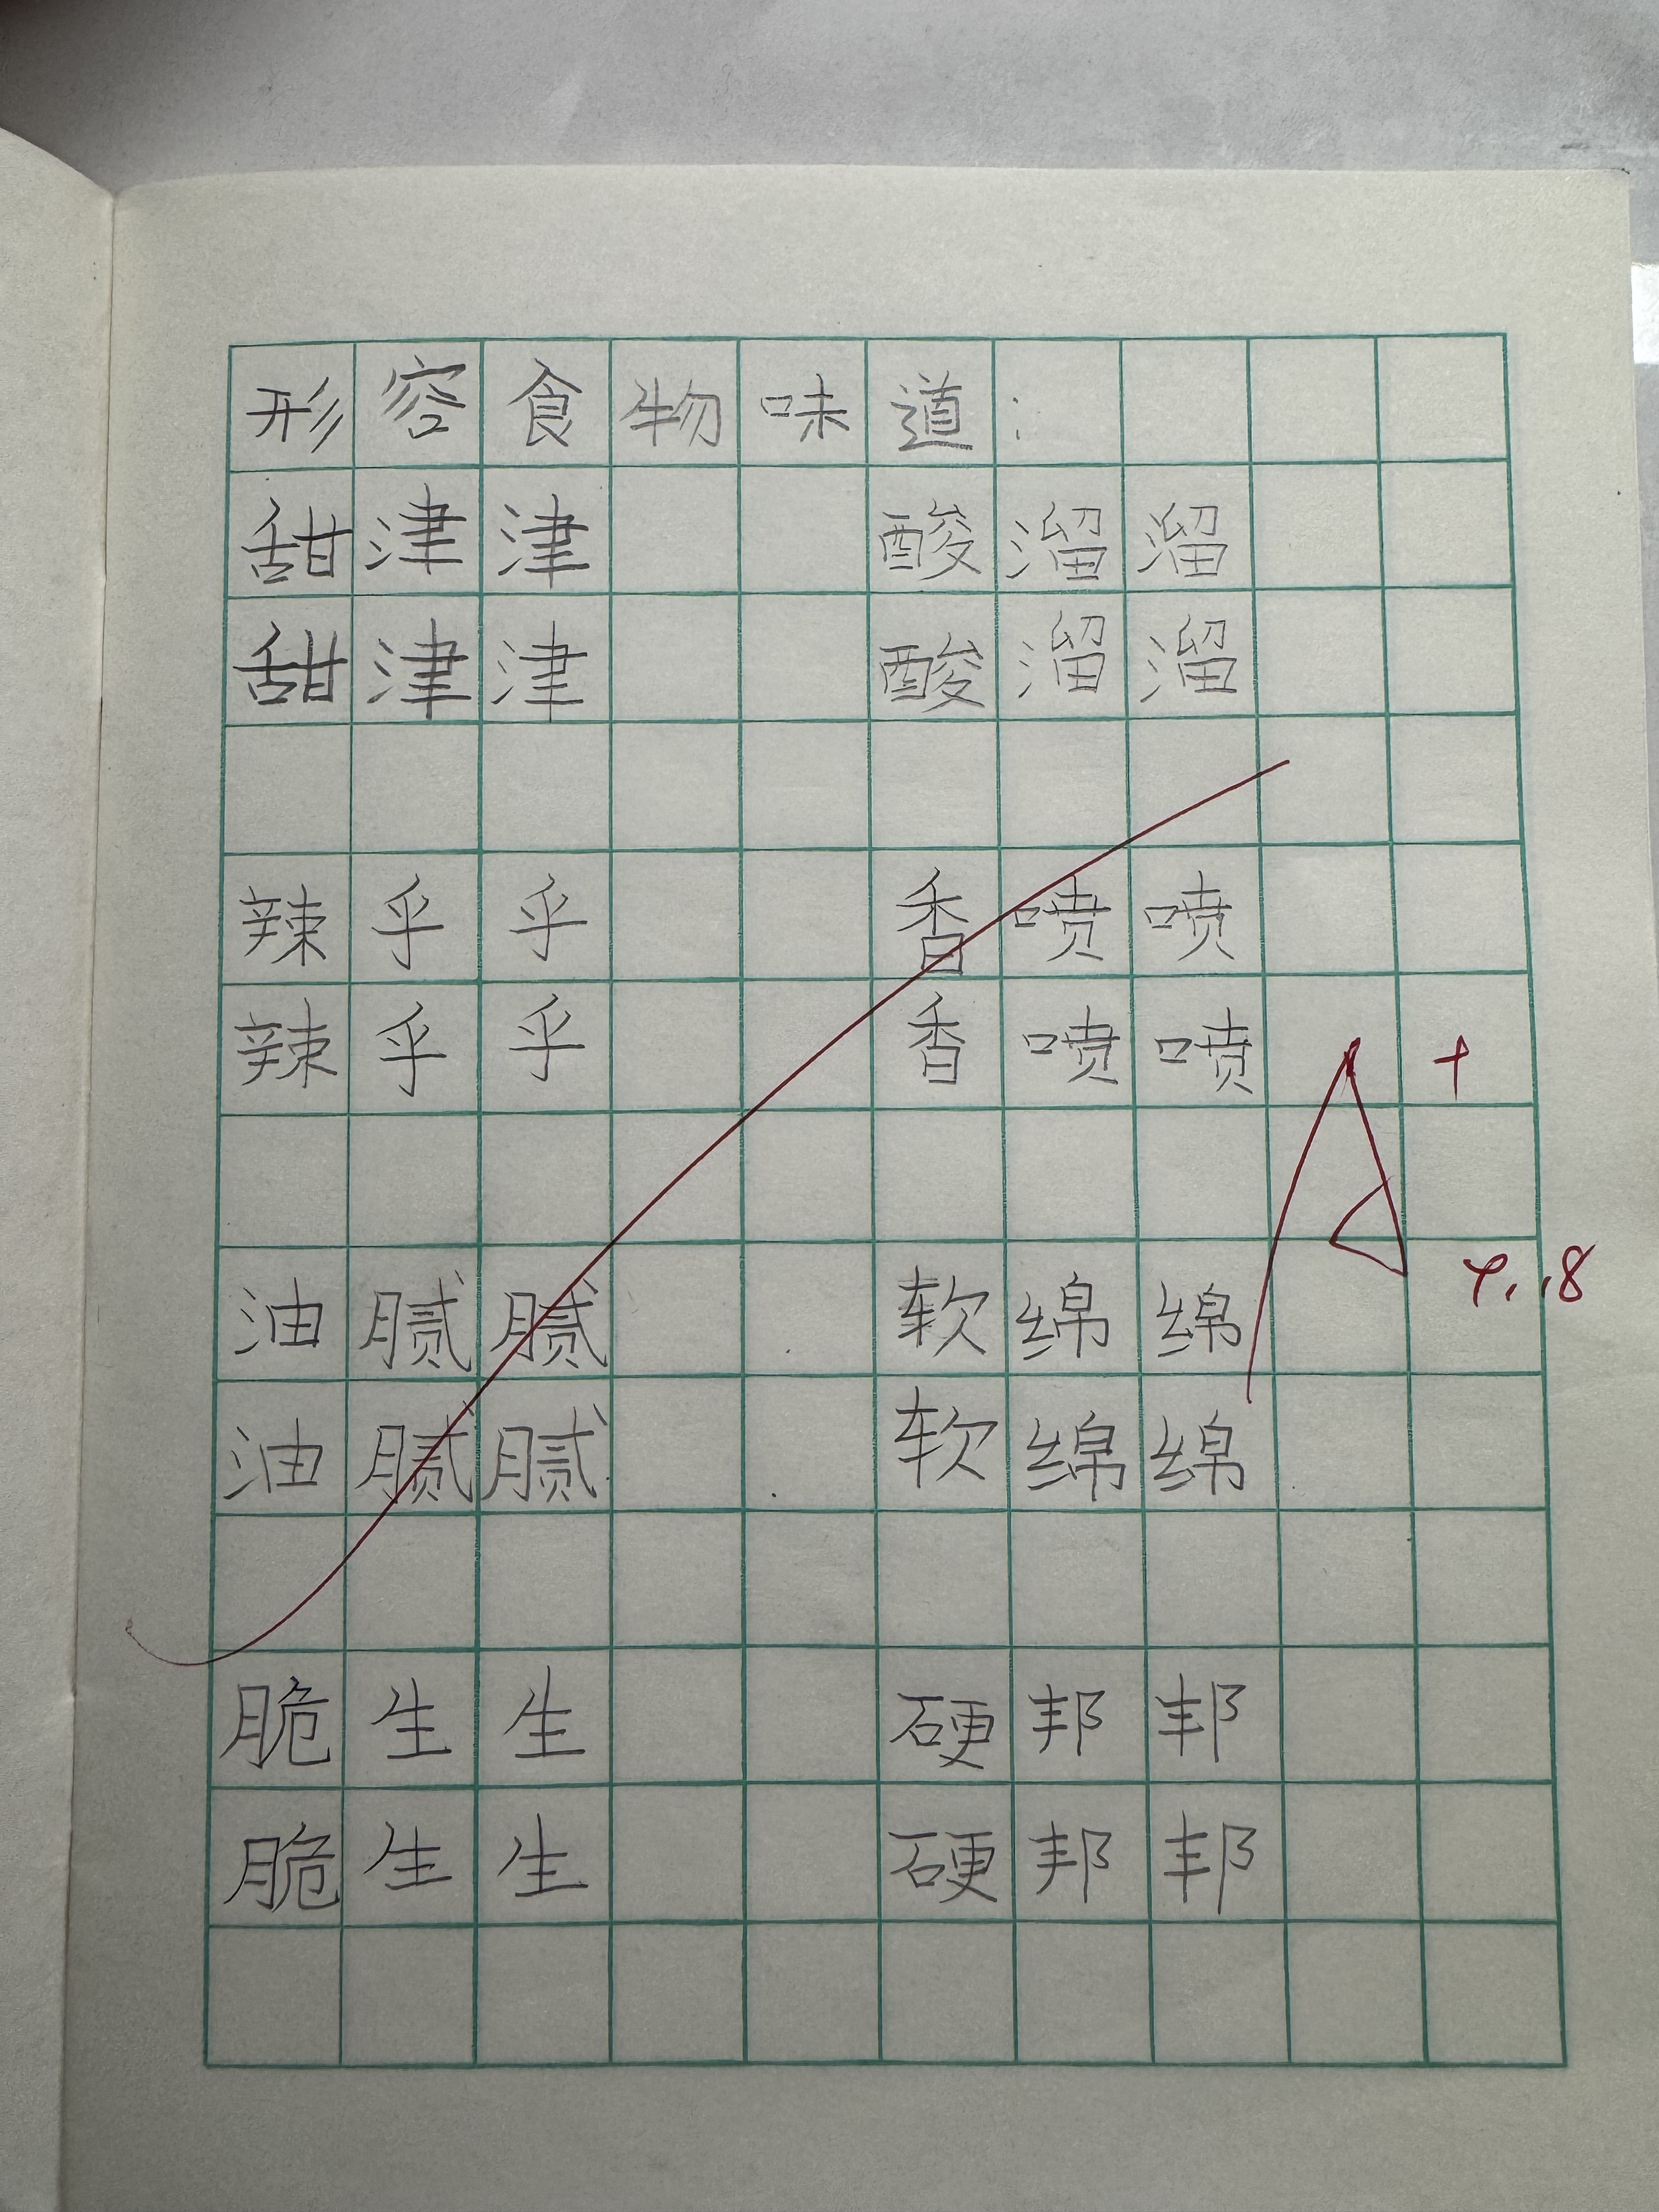 形容食物味道:
甜津津 酸溜溜
甜津津 酸溜溜
辣乎乎 香喷喷
辣乎乎 香喷喷
A +
油腻腻 软绵绵
油腻腻 软绵绵
脆生生 硬邦邦
脆生生 硬邦邦